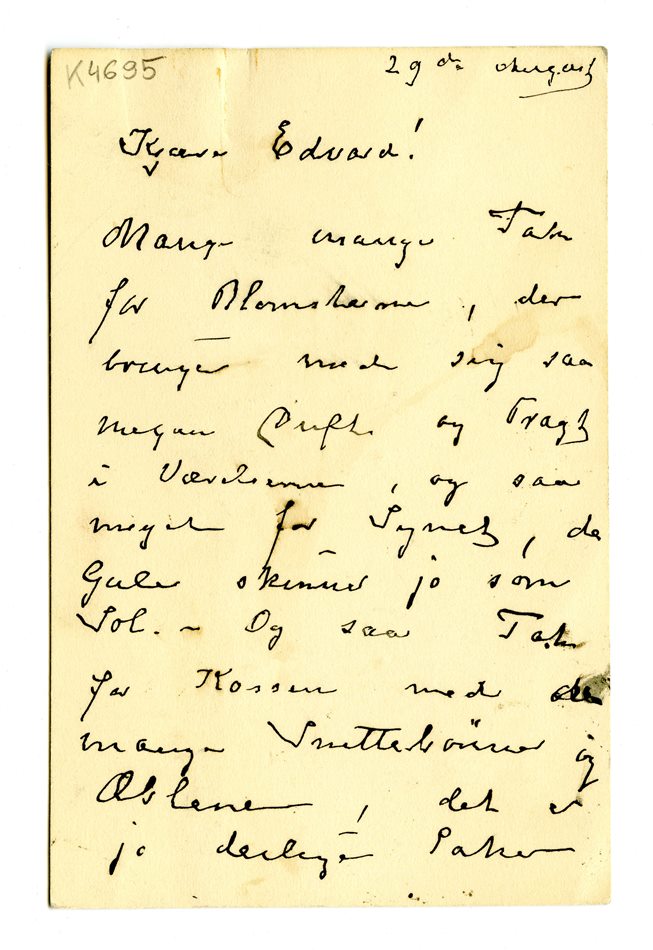 K4695
29de August
Kjære Edvard!
Mange mange Tak
for Blomsterne, der
bringer med sig saa
megen Dufte og Pragt
i Værelserne, og saa
meget for Synet, de
Gule skinner jo som
Sol. – Og saa Tak
for Kassen med de
mange Snittebönner og
Æblene, det er
jo deilige Saker